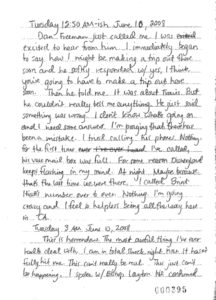 Tuesday 12:50 AM-ish June 10, 2008
Dan Freeman just called me. I was
excited to hear from him. I immediately began
to say how I might be making a trip out there
soon and he softly responded w/ yes, I think
you're going to have to make a trip out here
soon. Then he told me. It was about Travis. But
he couldn't really tell me anything. He just said
something was wrong. I don't know what's going on
and I need some answers. I'm praying that there has
been a mistake. I tried calling his phone. Nothing,
for the first time I've called,
his voice mail box was full. For some reason Disneyland
keeps flashing in my mind. At night. Maybe because
that's the last time we were there. I called
number over & over. Nothing. I'm going
crazy and I feel so helpless being all the way here
in CA.
Tuesday 3 AM June 10, 2008
This is horrendous. The most awful thing I've ever
had to deal with. I am in total shock right now. It hasn't
fully hit me. This can't really be real. This just can't
be happening. I spoke w/ Bishop Layton. He confirmed
000295